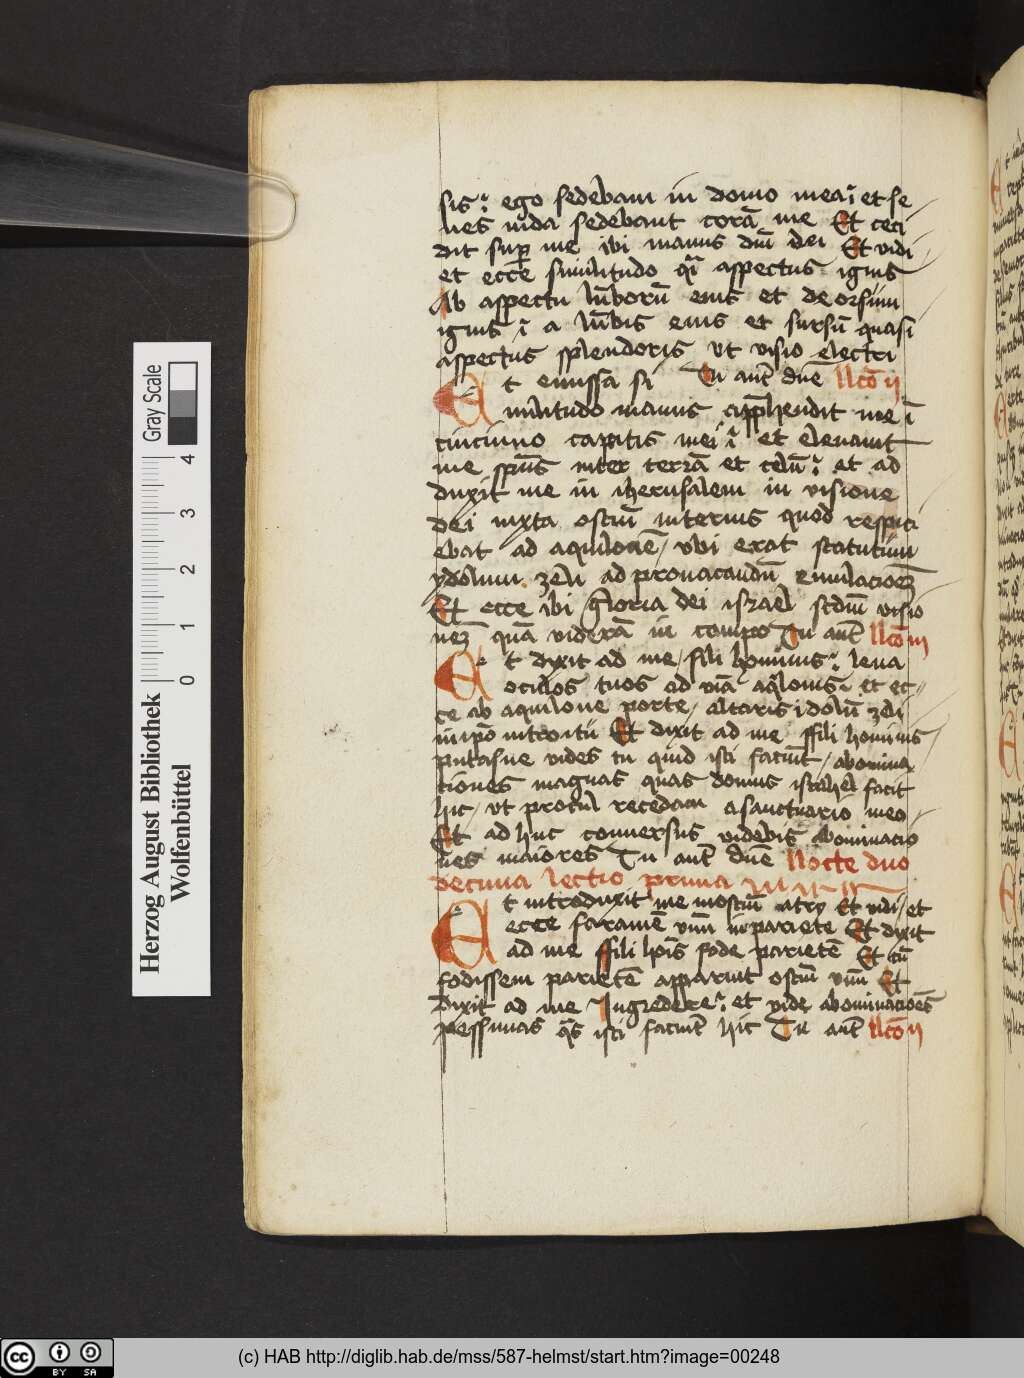 sis ego sedebam in domo mea et se
nes iuda sedebant corā me Et ceci
dit sup me ibi manus dn̄i dei Et vidi
et ecce similitudo qi aspectus ignis
Ab aspectu lūborū eius et deorsum
ignis ī a lūbis eius et sursū quasi
aspectus splendoris vt visio electri
Et emissa si Tu aut dn̄e llcō ij
militudo manus app̄hendit me ī
cincinno capitis mei et eleuauit
me sp̄us inter terrā et celū et ad
duxit me in iherusalem in visione
dei iuxta ostiū interius quod respici
ebat ad aquilonē vbi erat statutum
ydolum zeli ad prouocandū emulacioēz
Et ecce ibi gloria dei israel scdm visio
nez quā viderā in campo Tu aut llcō iij
Et dixit ad me fili hominis leua
oculos tuos ad viā aqilonis et ec
ce ab aquilone porte altaris idolū zeli
in ip̄o introitu Et dixit ad me ffili hominis
putasne vides tu quid isti faciūt abomina
tiones magnas quas domus israhel facit
hic vt procul recedam a sanctuario meo
Et ad huc conuersus videbis abominacio
nes maiores Tu aut dn̄e llocte duo
decima lectio prima
Et introduxit me in ostiū atrij Et vidi et
ecce foramē vnū in pariete Et dixit
ad me ffili hois fode parietē Et cū
fodissem parietē apparuit ostiū vnū Et
dixit ad me Ingredere et vide abominacoēs
pessimas qs isti faciūt hic Tu aut llcō ij
Herzog August Bibliothek
Wolfenbüttel
Gray Scale
0 1 2 3 4
cc BY SA
(c) HAB http://diglib.hab.de/mss/587-helmst/start.htm?image=00248